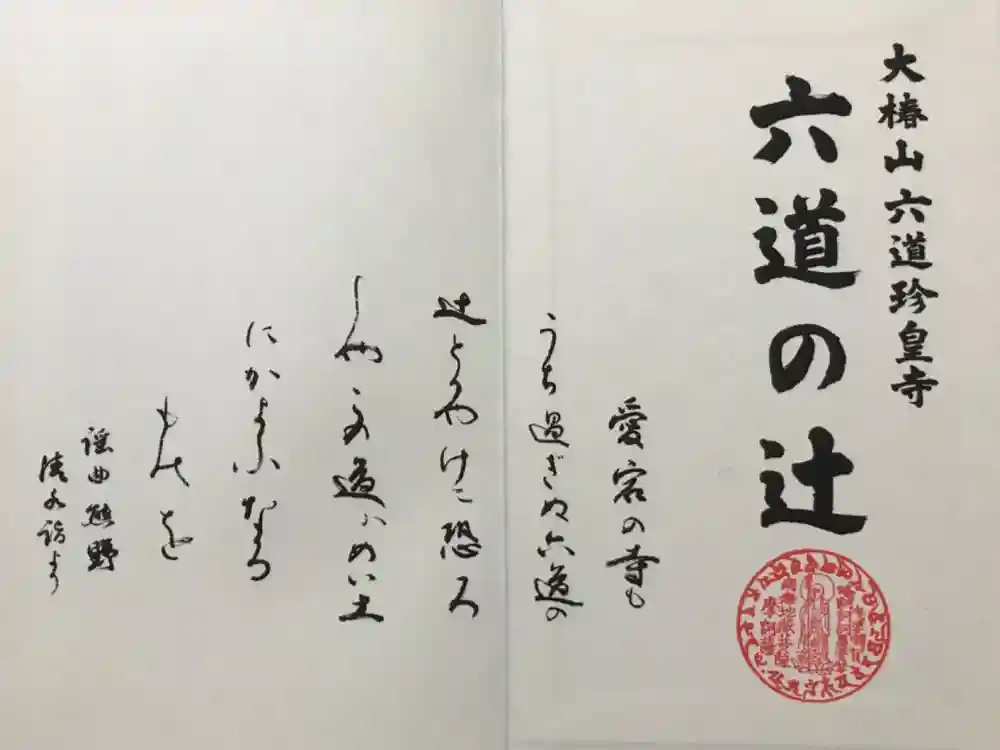 大椿山六道珍皇寺
六道の辻
愛宕の寺も
うち過ぎぬ六道の
辻とかやけに恐ろ
しやこの道ハめい土
にかよふなる
ものを
謡曲熊野
清水詣より